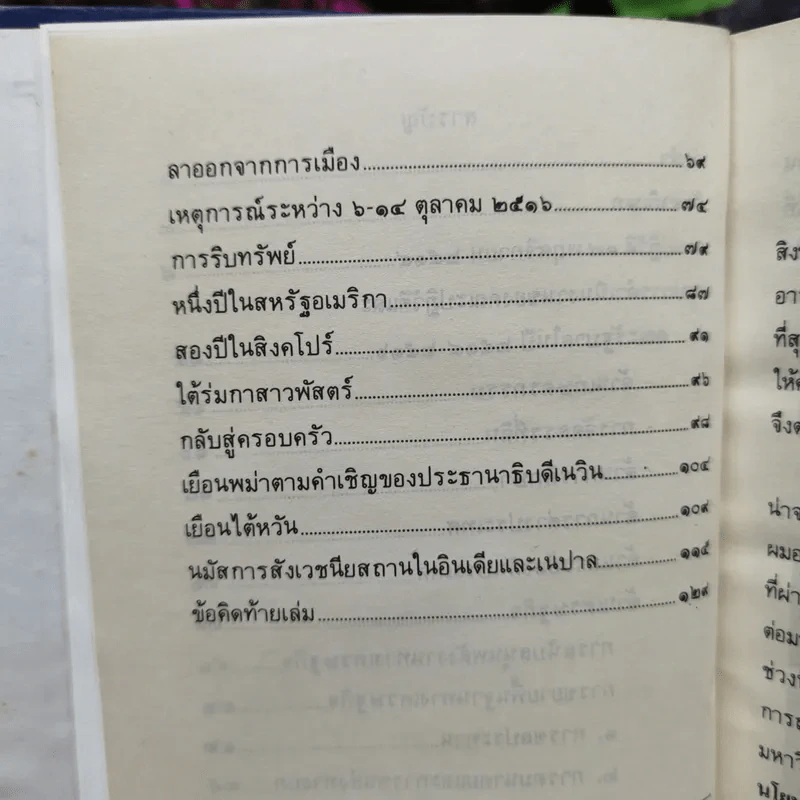 ลาออกจากการเมือง ๖๙
เหตุการณ์ระหว่าง ๖-๑๔ ตุลาคม ๒๕๑๖ ๗๔
การริบทรัพย์ ๗๙
หนึ่งปีในสหรัฐอเมริกา ๘๗
สองปีในสิงคโปร์ ๙๑
ใต้ร่มกาสาวพัสตร์ ๙๖
กลับสู่ครอบครัว ๙๘
เยือนพม่าตามคำเชิญของประธานาธิบดีเนวิน ๑๐๔
เยือนไต้หวัน ๑๐๙
นมัสการสังเวชนียสถานในอินเดียและเนปาล ๑๑๕
ข้อคิดท้ายเล่ม ๑๒๙
ที่สุ
ให้
จึงต
น่าจ
ผมอ
ที่ผ่า
ต่อม
ช่วง
การ
มหาวิ
นโย